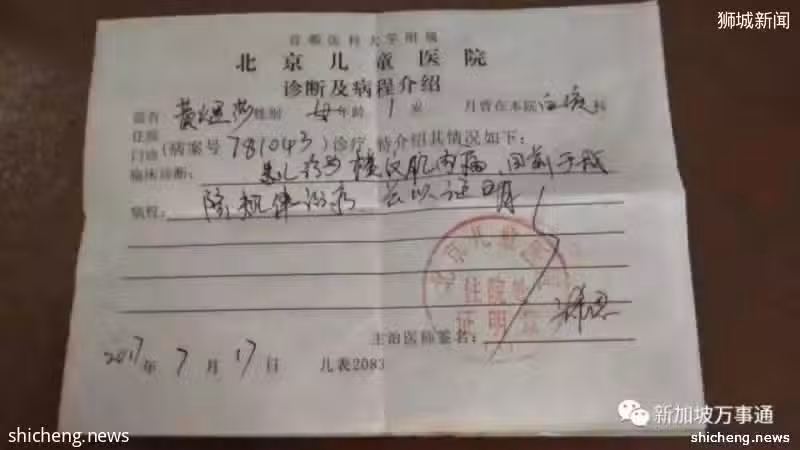 狮城新闻
首都医科大学附属
北京儿童医院
诊断及病程介绍
兹有 黄 性别 女 年龄 1 岁 月曾在本院 科
住院
门诊 (病案号 781043) 诊疗 特介绍其情况如下:
临床诊断: 患儿诊为横纹肌肉瘤,目前于我
病程: 院规律治疗 兹以证明
北京儿童医院
住院处
证明章
主治医师签名:
2017 年 7 月 17 日 儿表2083
新加坡万事通
shicheng.news
shicheng.news